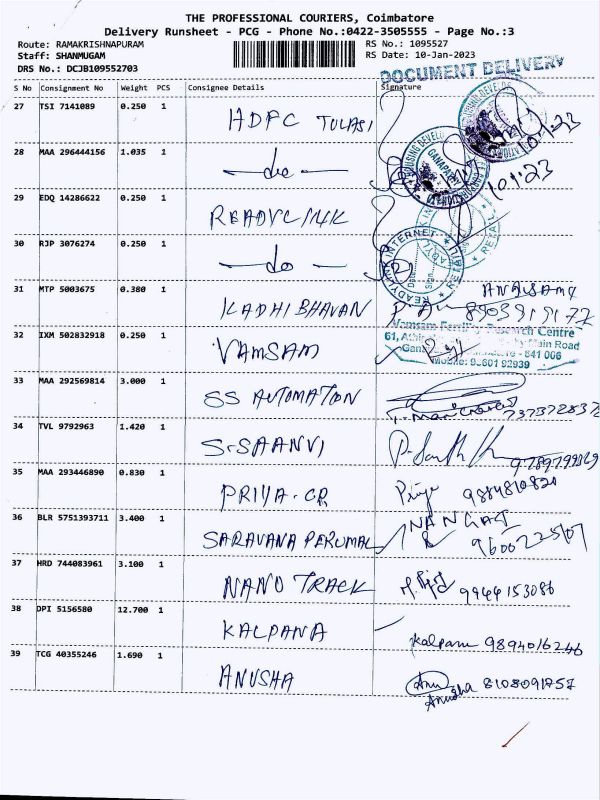 THE PROFESSIONAL COURIERS, Coimbatore
Delivery Runsheet - PCG - Phone No.:0422-3505555 - Page No.:3
Route: RAMAKRISHNAPURAM RS No.: 1095527
Staff: SHANMUGAM RS Date: 10-Jan-2023
DRS No.: DCJB109552703
DOCUMENT DELIVERY
S No Consignment No Weight PCS Consignee Details Signature
27 TSI 7141089 0.250 1
HDFC TULASI
10.1.23
28 MAA 296444156 1.035 1
do
10.1.23
29 EDQ 14286622 0.250 1
READYLINK
30 RJP 3076274 0.250 1
do
READYLINK INTERNET
31 MTP 5003675 0.380 1
KADHI BHAVAN
32 IXM 502832918 0.250 1
VAMSAM
Vamsam Fertility Research Centre
Main Road
641 006
33 MAA 292569814 3.000 1
SS AUTOMATION
34 TVL 9792963 1.420 1
S-SAANVI
35 MAA 293446890 0.830 1
PRIYA.CR
Priya
36 BLR 5751393711 3.400 1
SARAVANA PERUMAL
37 HRD 744083961 3.100 1
NANO TRACK
9944153086
38 DPI 5156580 12.700 1
KALPANA
Kalpana 9894016246
39 TCG 40355246 1.690 1
ANUSHA
Anu
Anusha 8108091857